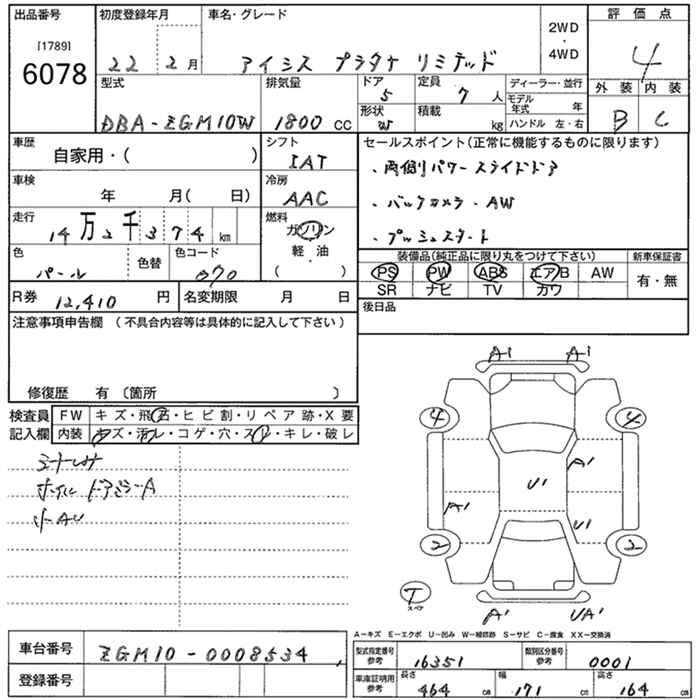 出品番号 初度登録年月 車名・グレード 評価点
[1789]
6078
22 2月 アイシス プラタナ リミテッド 2WD・4WD 4
型式 排気量 ドア 5 定員 7人 ディーラー・並行 外装 内装
DBA-ZGM10W 1800cc 形状 W 積載 kg モデル年式 年 ハンドル 左・右 B C
車歴 シフト セールスポイント(正常に機能するものに限ります)
自家用・( ) IAT ・両側パワースライドドア
車検 冷房
年 月( 日) AAC ・バックカメラ・AW
走行 燃料
14万2千374km ガソリン ・プッシュスタート
軽・油
( )
色 色替 色コード 装備品(純正品に限り丸をつけて下さい) 新車保証書
パール 070 PS PW ABS エアB AW 有・無
SR ナビ TV カワ
R券 12,410円 名変期限 月 日 後日品
注意事項申告欄 (不具合内容等は具体的に記入して下さい)
修復歴 有〔箇所 〕
検査員 FW キズ・飛石・ヒビ割・リペア跡・X要
記入欄 内装 キズ・汚レ・コゲ・穴・スレ・キレ・破レ
ホイル ドアミラーA
小AU
A1 A1
4 4
A1
U1
A1 U1
2 2
T
スペア
A1 UA1
A−キズ E−エクボ U−凹み W−補修跡 S−サビ C−腐食 XX−交換済
車台番号 ZGM10-0008534
登録番号
型式指定番号 参考 16351 類別区分番号 参考 0001
車庫証明用 参考 長さ 464cm 幅 171cm 高さ 164cm